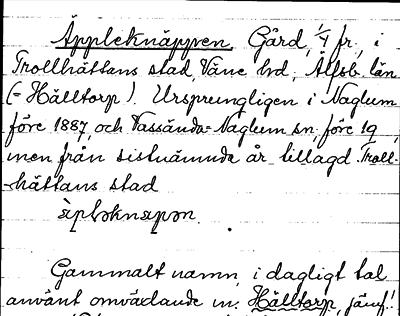 Äppleknäppen Gård, 1/4 fr., i
Trollhättans stad, Väne hd, Älfsb. län
(= Hälltorp). Ursprungligen i Naglum
före 1887, och Vassända-Naglum sn, före 19 ,
men från sistnämnda år tillagd Troll-
-hättans stad
Gammalt namn, i dagligt tal
använt omväxlande m. Hälltorp, jämf!